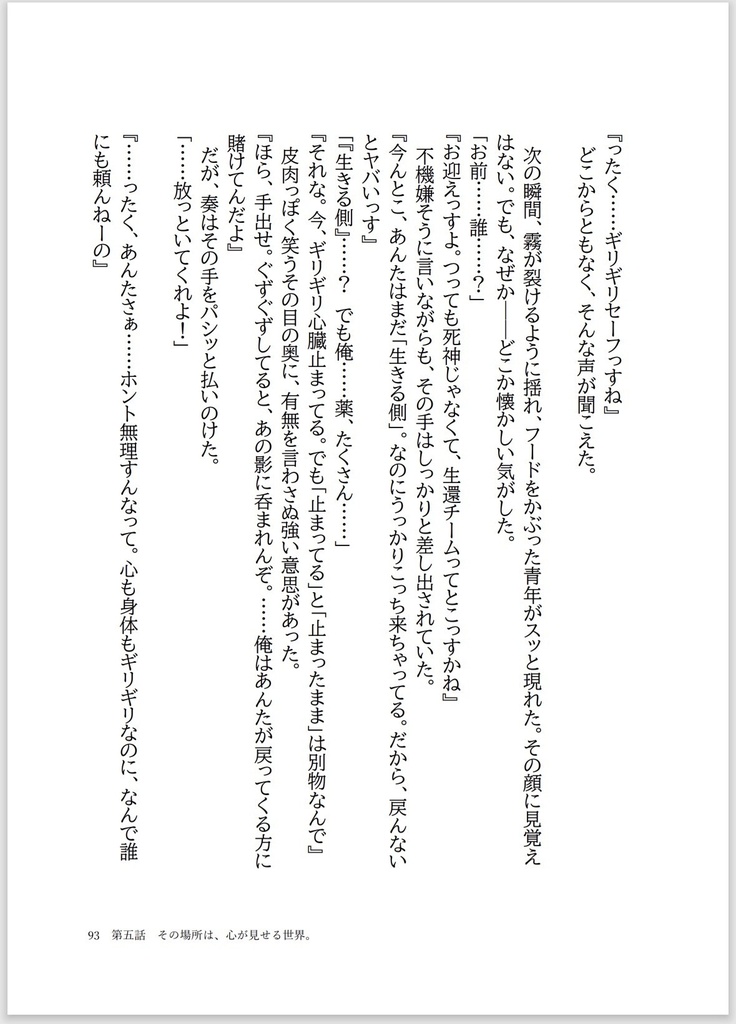 『ったく……ギリギリセーフっすね』
どこからともなく、そんな声が聞こえた。
次の瞬間、霧が裂けるように揺れ、フードをかぶった青年がスッと現れた。その顔に見覚え
はない。でも、なぜか――どこか懐かしい気がした。
「お前……誰……？」
『お迎えっすよ。つっても死神じゃなくて、生還チームってとこっすかね』
不機嫌そうに言いながらも、その手はしっかりと差し出されていた。
『今んとこ、あんたはまだ「生きる側」。なのにうっかりこっち来ちゃってる。だから、戻んない
とヤバいっす』
「『生きる側』……？　でも俺……薬、たくさん……」
『それな。今、ギリギリ心臓止まってる。でも「止まってる」と「止まったまま」は別物なんで』
皮肉っぽく笑うその目の奥に、有無を言わさぬ強い意思があった。
『ほら、手出せ。ぐずぐずしてると、あの影に呑まれんぞ。……俺はあんたが戻ってくる方に
賭けてんだよ』
だが、奏はその手をパシッと払いのけた。
「……放っといてくれよ！」
『……ったく、あんたさぁ……ホント無理すんなって。心も身体もギリギリなのに、なんで誰
にも頼んねーの』
93　第五話　その場所は、心が見せる世界。